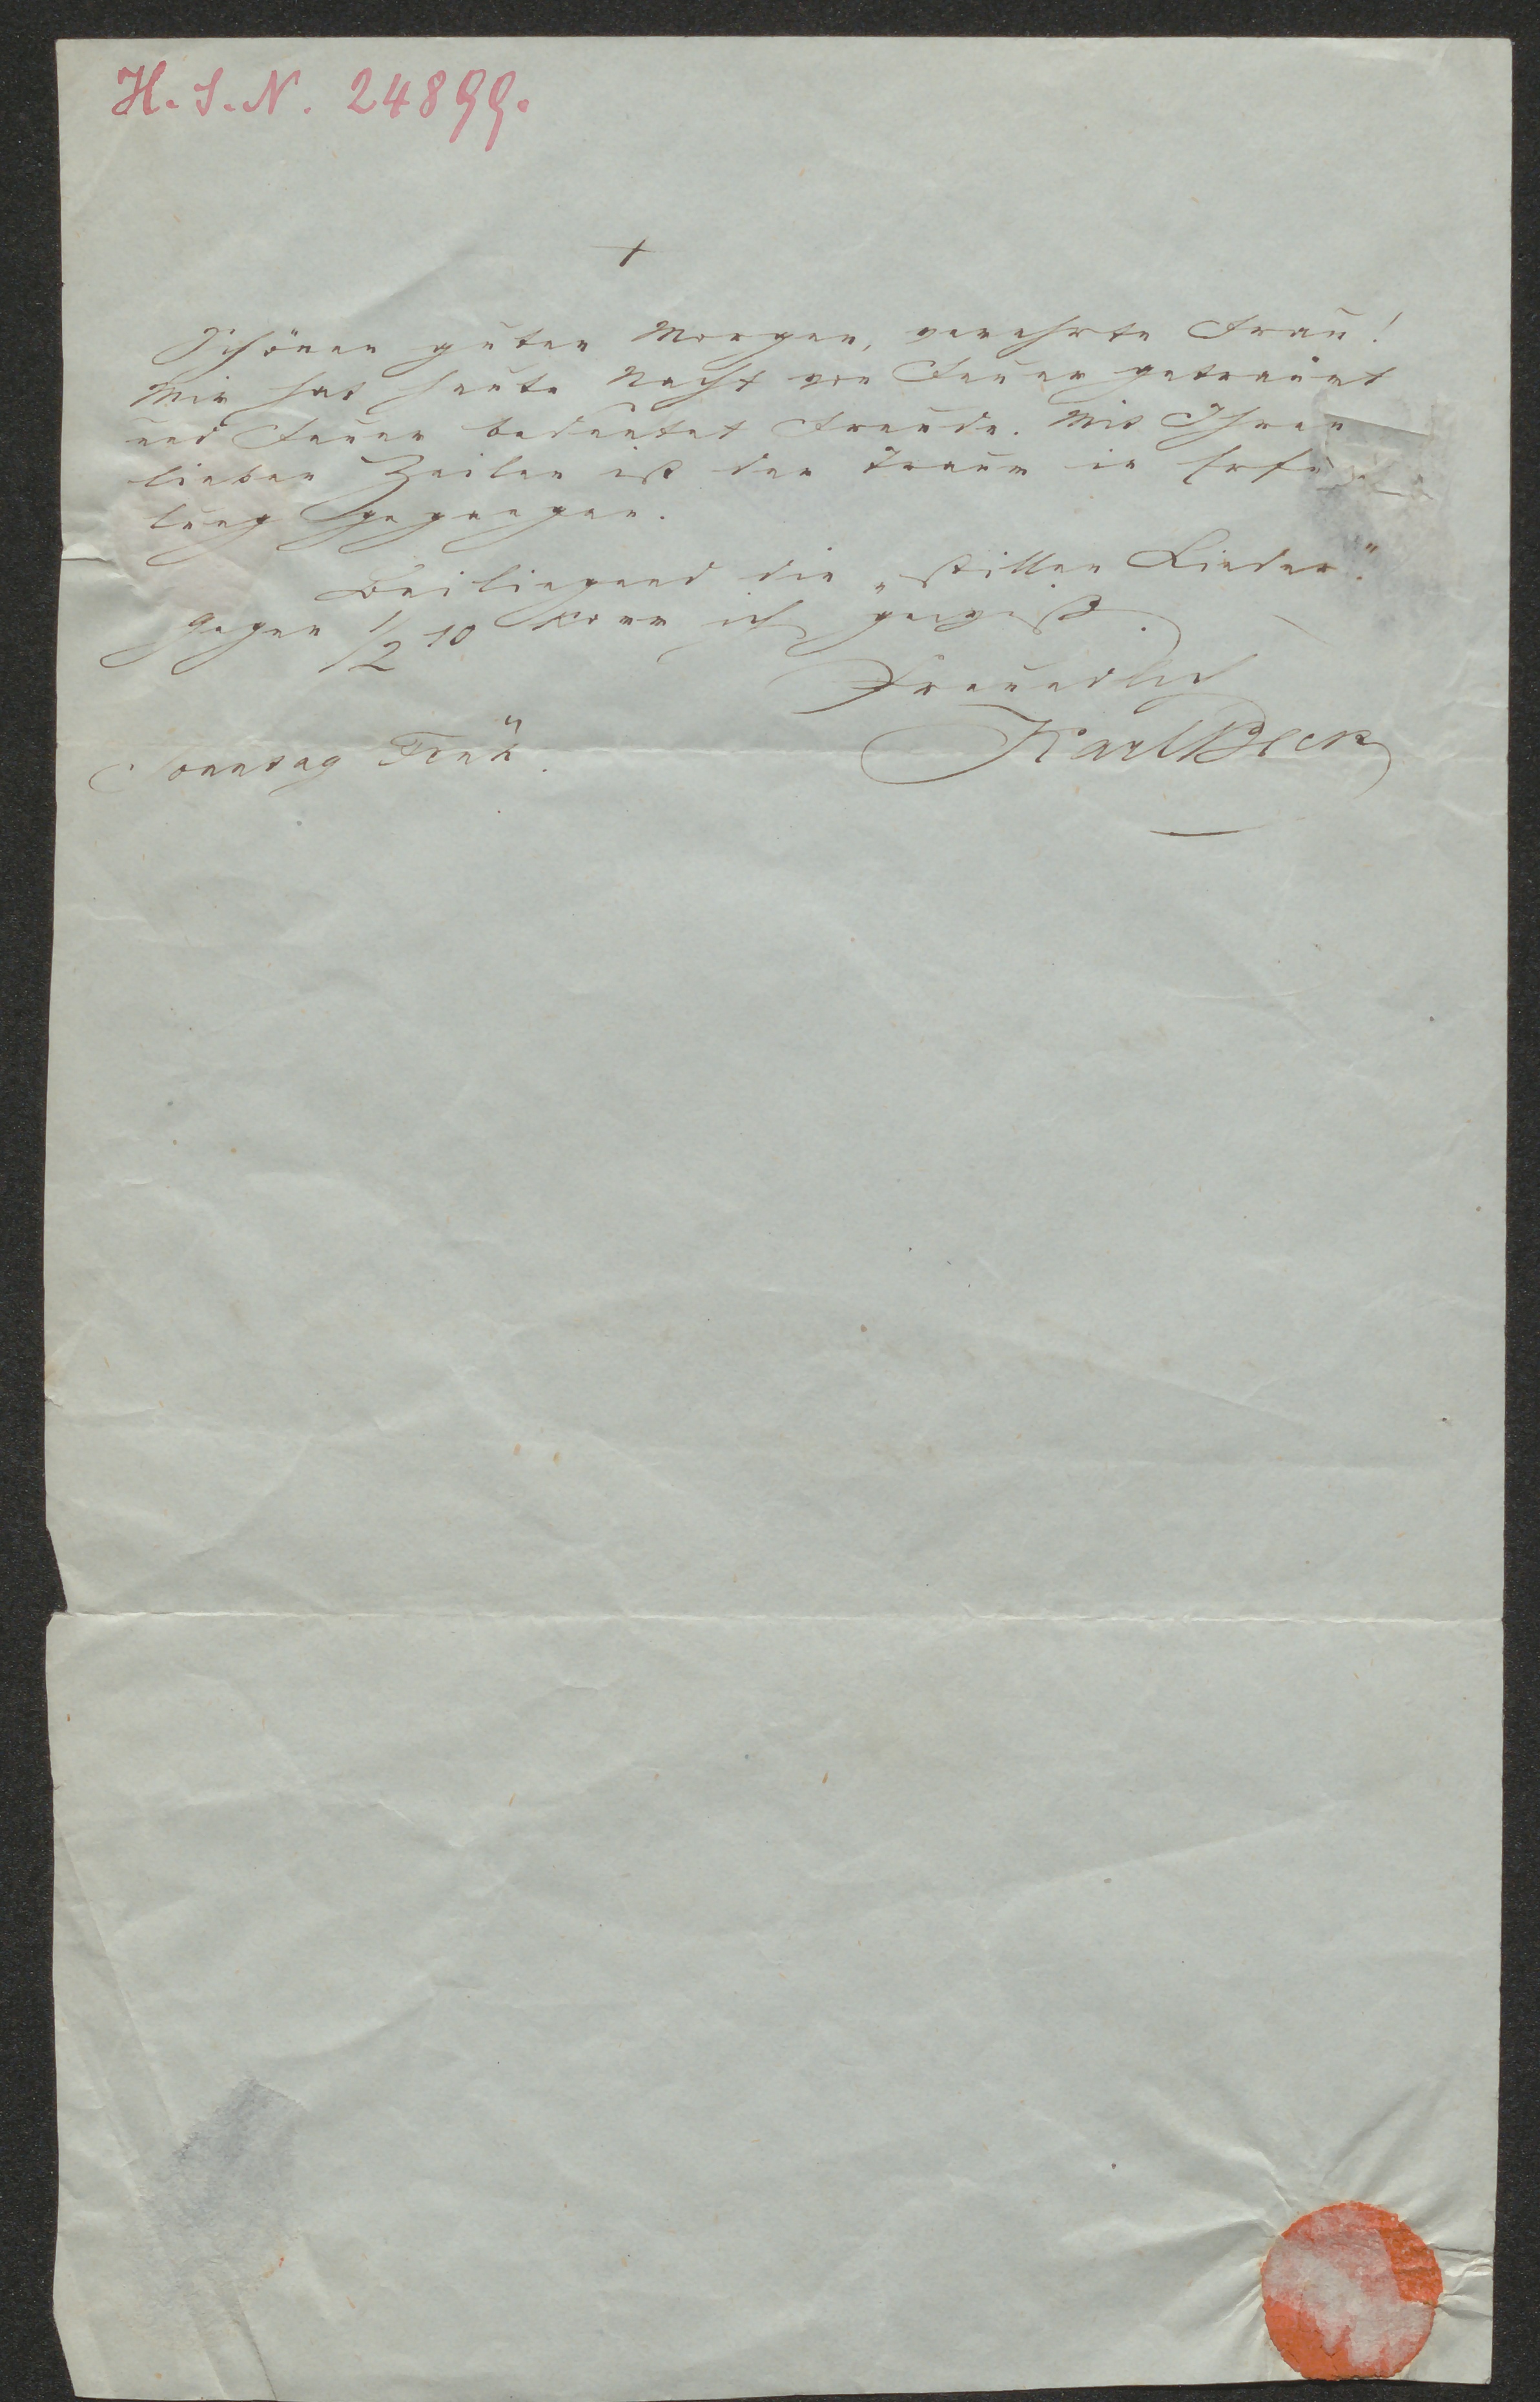 H. I. N. 24899.
+
Schönen guten Morgen, verehrte Frau!
Mir hat heute Nacht von Feuer geträumt
und Feuer bedeutet Freude. Mit Ihren
lieben Zeilen ist der Traum in Erfül
lung gegangen.
Beiliegend die „stillen Lieder".
Gegen 1/2 10 kom ich gewiß.
Freundlich
Karl Beck
Sonntag Früh.